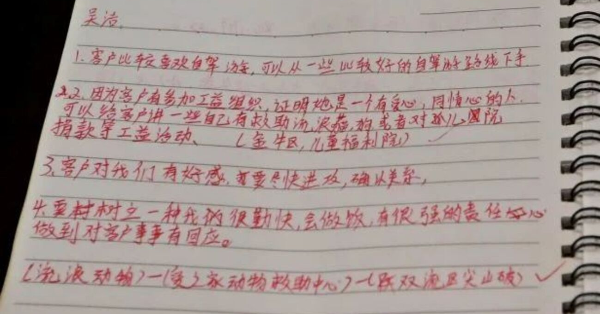 吴洁
1.客户比较喜欢自驾游,可以从一些比较好的自驾游路线下手
2.因为客户有参加工益组织,证明她是一个有爱心,同情心的人
可以给客户讲一些自己有救助流浪猫,狗或者对孤儿院
捐款等工益活动、(金牛区,儿童福利院)
3.客户对我们有好感,需要尽快进攻,确认关系,
4.要树立一种我们很勤快,会做饭,有很强的责任心
做到对客户事事有回应。
(流浪动物)—(爱之家动物救助中心)—(双流区尖山坡)